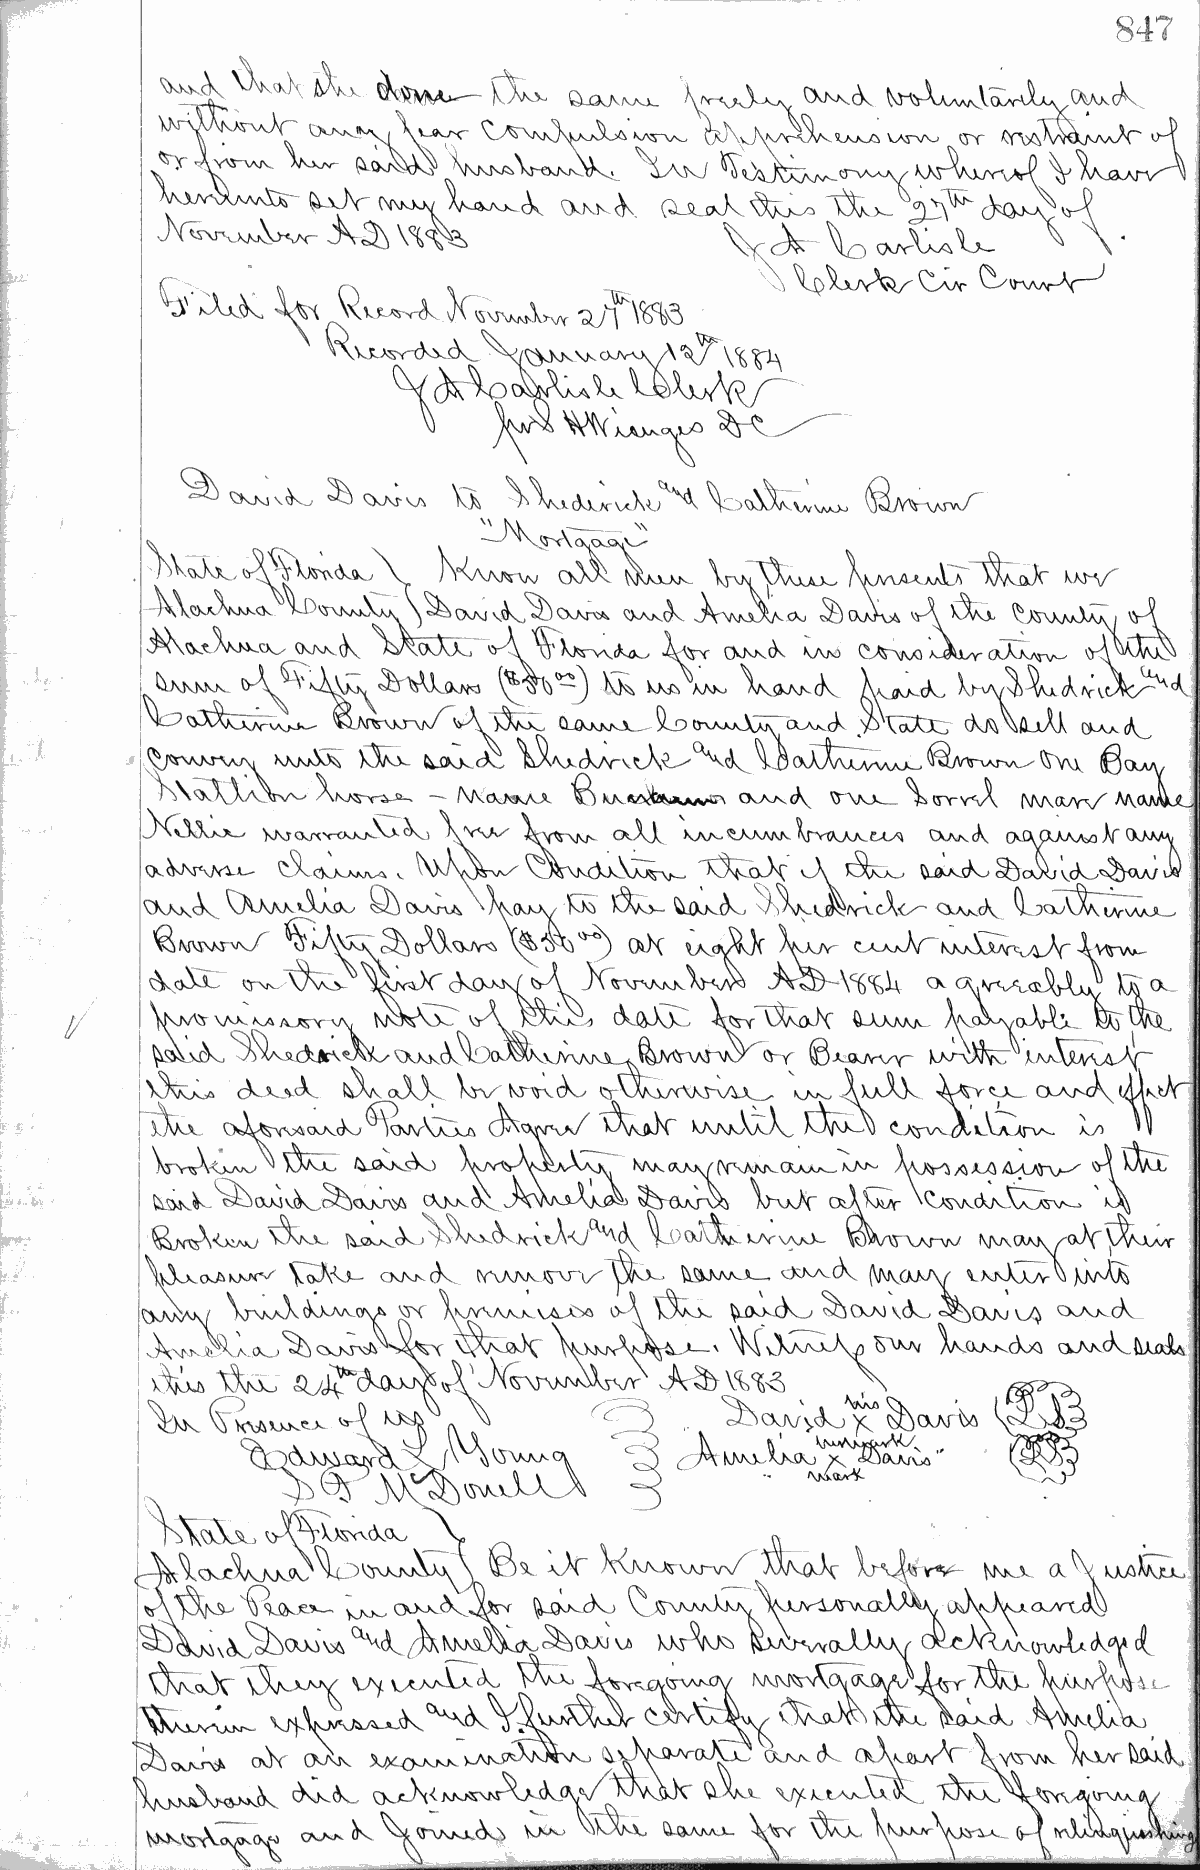 847
and that she done the same freely and voluntarily and
without any fear compulsion apprehension or restraint of
or from her said husband. In Testimony whereof I have
hereunto set my hand and seal this the 27th day of
November AD 1883 J A Carlisle
Clerk Cir Court
Filed for Record November 27th 1883
Recorded January 12th 1884
J A Carlisle Clerk
pr S H Wienges DC
David Davis to Shederick and Catherine Brown
"Mortgage"
State of Florida } Know all men by these presents that we
Alachua County } David Davis and Amelia Davis of the County of
Alachua and State of Florida for and in consideration of the
sum of Fifty Dollars ($50 00) to us in hand paid by Shedrick and
Catherine Brown of the same County and State do sell and
convey unto the said Shedrick and Catherine Brown One Bay
Stallion horse - name and one Sorrel mare name
Nellie warranted free from all incumbrances and against any
adverse claims. Upon Condition that if the said David Davis
and Amelia Davis pay to the said Shedrick and Catherine
Brown Fifty Dollars ($50 00) at eight per cent interest from
date on the first day of November AD 1884 agreeably to a
promissory note of this date for that sum payable to the
said Shedrick and Catherine Brown or Bearer with interest
this deed shall be void otherwise in full force and effect
the aforesaid Parties Agree that until the condition is
broken the said property may remain in possession of the
said David Davis and Amelia Davis but after condition is
Broken the said Shedrick and Catherine Brown may at their
pleasure take and remove the same and may enter into
any buildings or premises of the said David Davis and
Amelia Davis for that purpose. Witness our hands and seals
this the 24th day of November AD 1883
In Presence of us David his x Davis (LS)
Edward L Young Amelia her mark x Davis (LS)
S F McDonell mark
State of Florida }
Alachua County } Be it Known that before me a Justice
of the Peace in and for said County personally appeared
David Davis and Amelia Davis who severally acknowledged
that they executed the foregoing mortgage for the purpose
therein expressed and I further certify that the said Amelia
Davis at an examination separate and apart from her said
husband did acknowledge that she executed the foregoing
mortgage and Joined in the same for the purpose of relinquishing